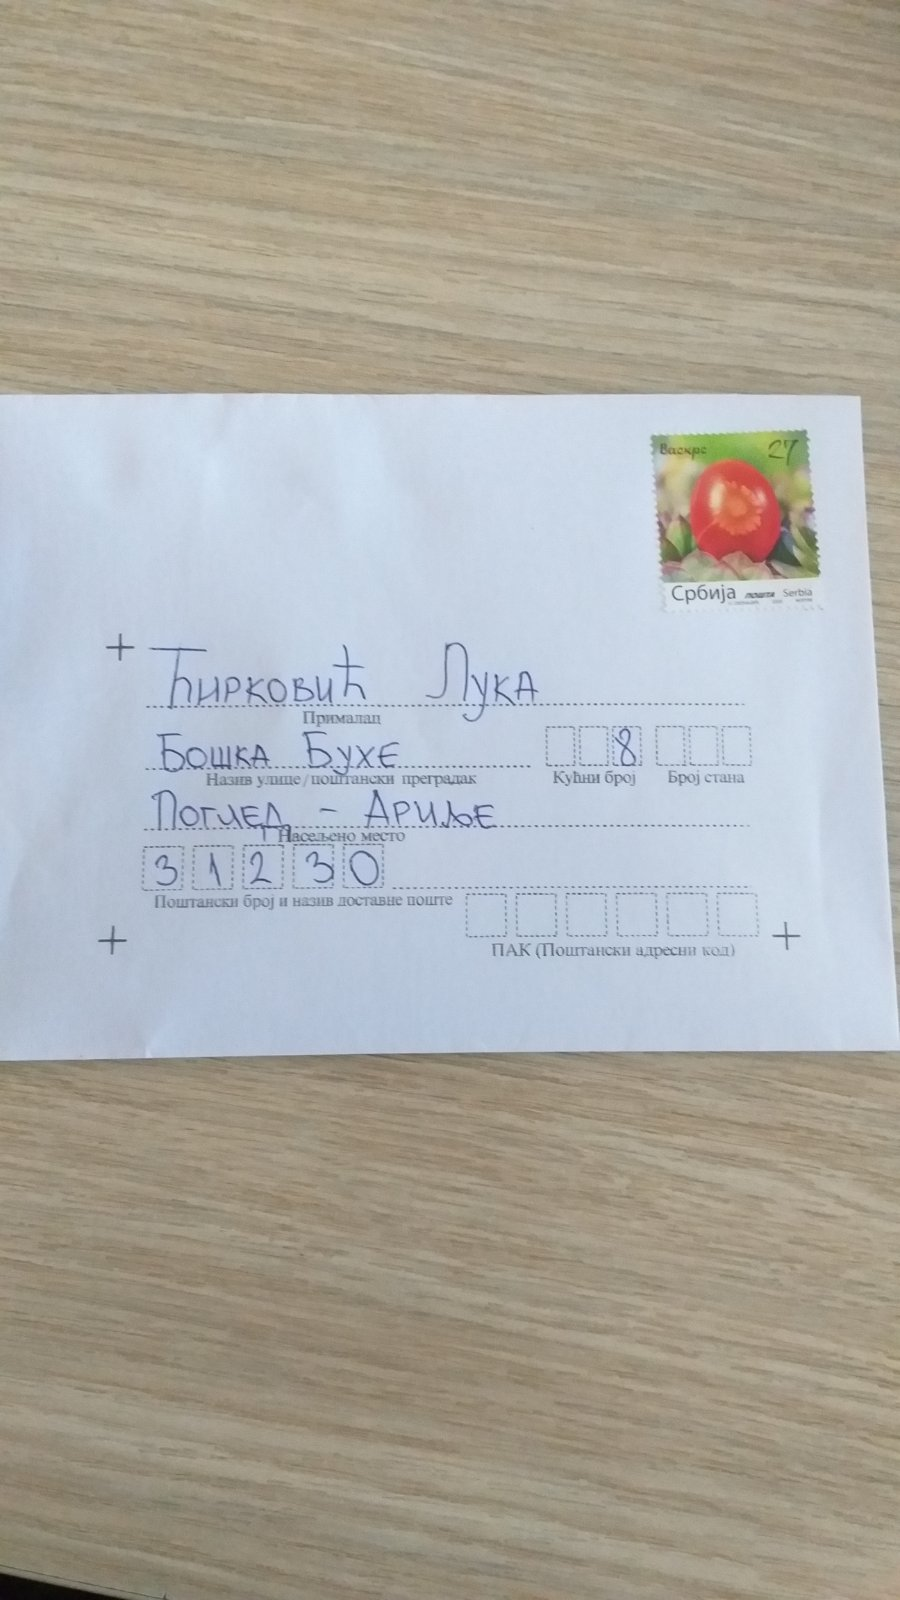 Васкрс 27
Србија пошта Serbia
Ћирковић Лука
Прималац
Бошка Бухе 8
Назив улице/поштански преградак Кућни број Број стана
Поглед - Ариље
Насељено место
31230
Поштански број и назив доставне поште
ПАК (Поштански адресни код)